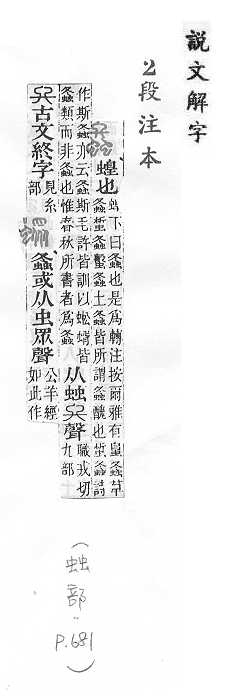 說文解字
2段注本
螽 蝗也 蝗下曰螽也是爲轉注按爾雅有皇螽草
螽蜤螽蟿螽土螽皆所謂螽醜也蜤螽詩
作斯螽亦云螽斯毛許皆訓以蜙蝑皆
螽類而非螽也惟春秋所書者爲螽 从䖵𠂂聲 職戎切
九部
𠂂古文終字 見糸
部 螽或从虫眾聲 公羊經
如此作
(䖵部:P.681)